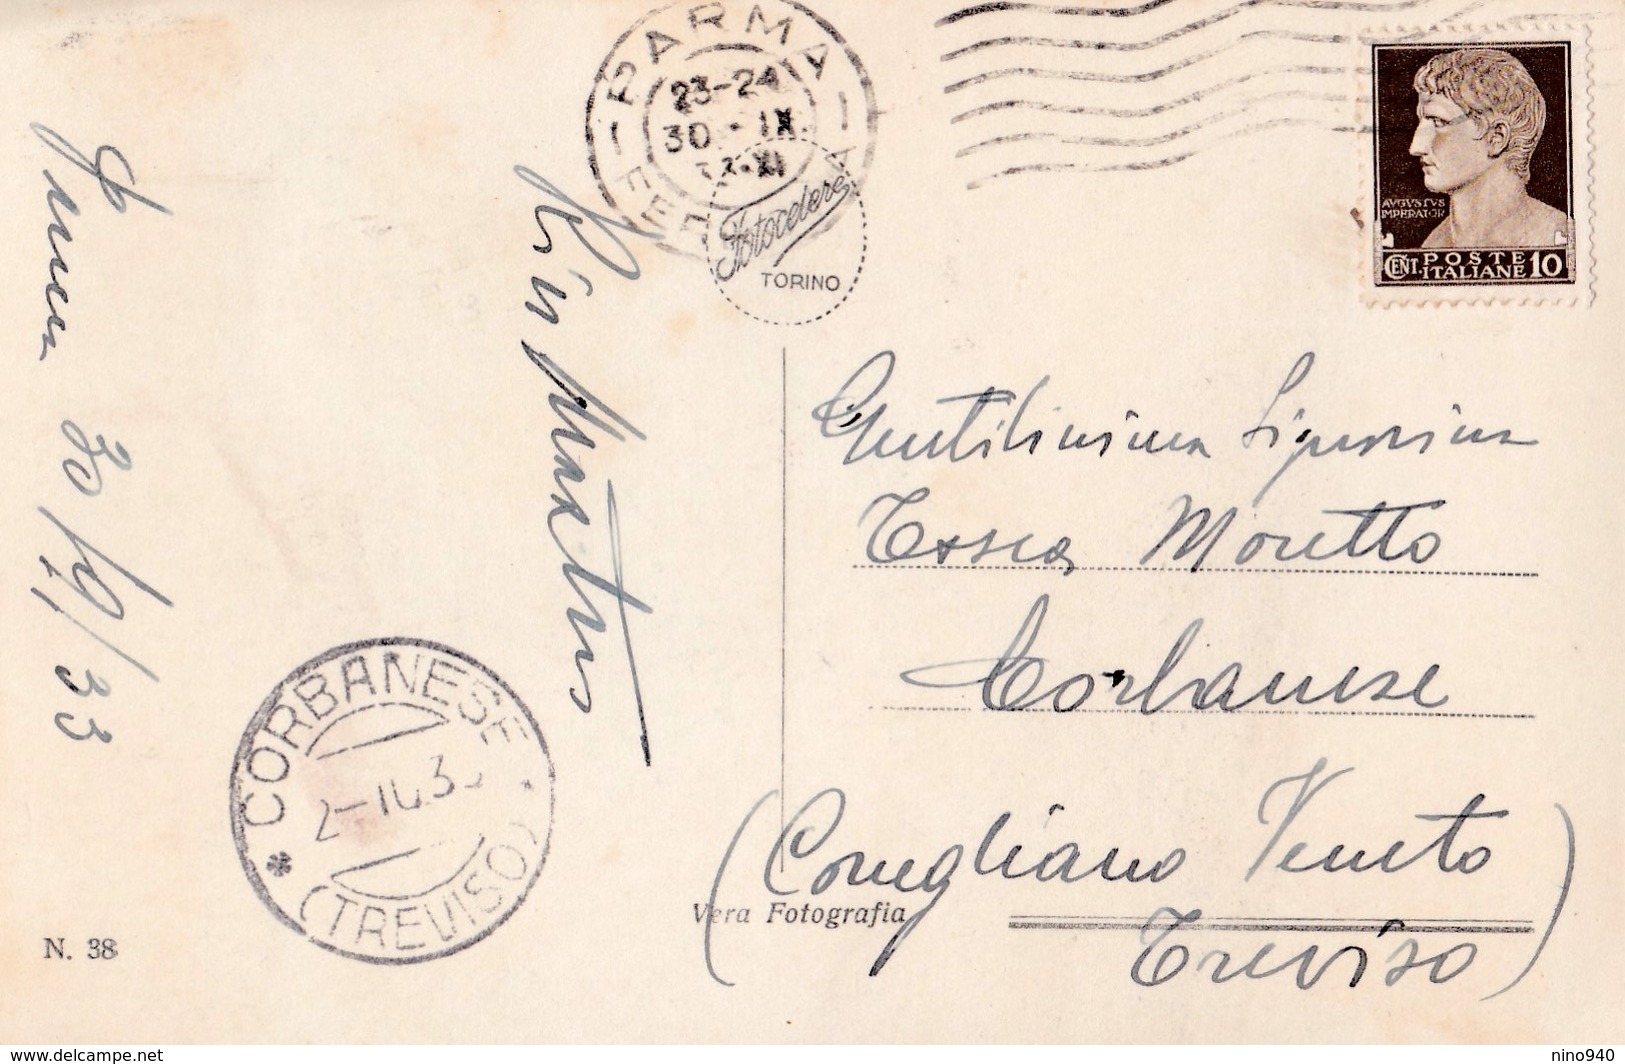 PARMA
23-24
30-IX
33-XI
FERR
Fotocelere
TORINO
AVGVSTVS
IMPERATOR
CENT. POSTE ITALIANE 10
30/9/33
Gentilissima Signorina
Tessea Moretto
Corbanese
(Conegliano Veneto
Treviso)
CORBANESE
2-10.33
(TREVISO)
Vera Fotografia
N. 38
https://www.delcampe.net
nino940